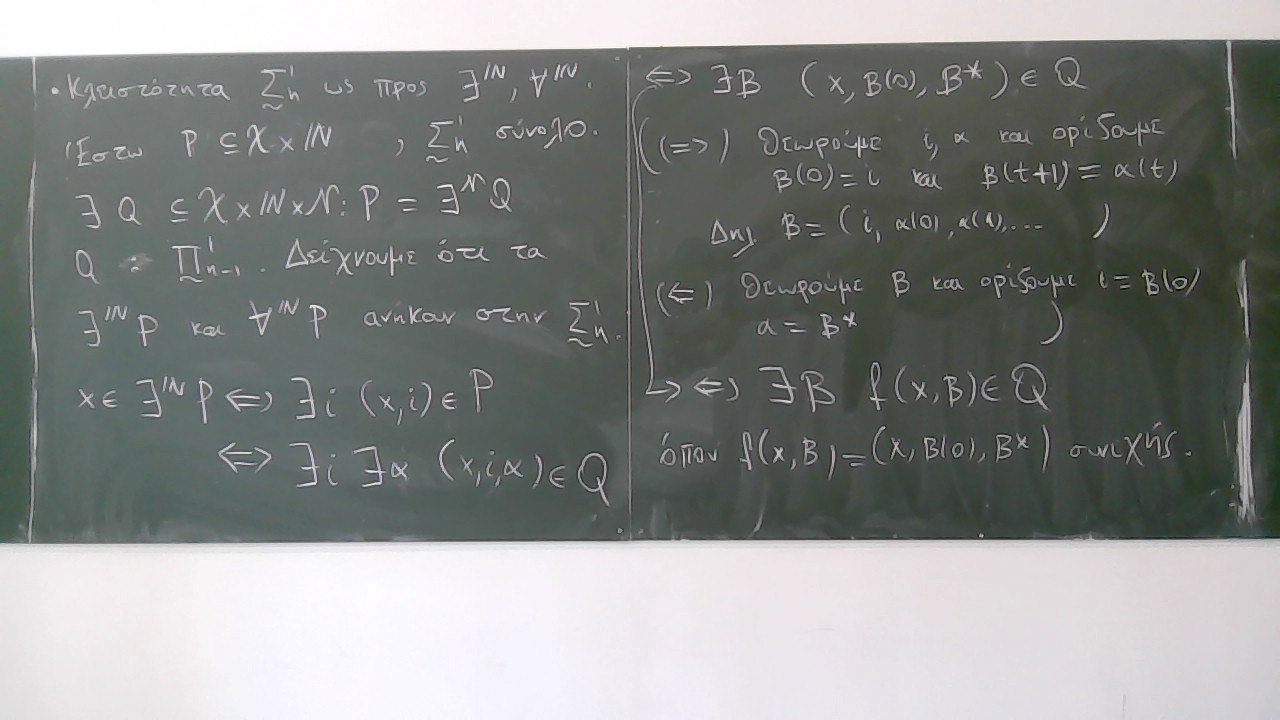 • Κλειστότητα Σ¹ₙ ως προς ∃^ℕ, ∀^ℕ.
Έστω P ⊆ 𝒳 × ℕ , Σ¹ₙ σύνολο.
∃ Q ⊆ 𝒳 × ℕ × 𝒩 : P = ∃^𝒩 Q
Q : Π¹ₙ₋₁. Δείχνουμε ότι τα
∃^ℕ P και ∀^ℕ P ανήκουν στην Σ¹ₙ.
x ∈ ∃^ℕ P ⇔ ∃i (x,i) ∈ P
⇔ ∃i ∃α (x,i,α) ∈ Q
⇔ ∃β (x, β(0), β*) ∈ Q
((⇒) Θεωρούμε i, α και ορίζουμε
β(0) = i και β(t+1) = α(t)
Δηλ β = (i, α(0), α(1), ... )
(⇐) Θεωρούμε β και ορίζουμε i = β(0)
α = β* )
⇔ ∃β f(x,β) ∈ Q
όπου f(x,β) = (x, β(0), β*) συνεχής.